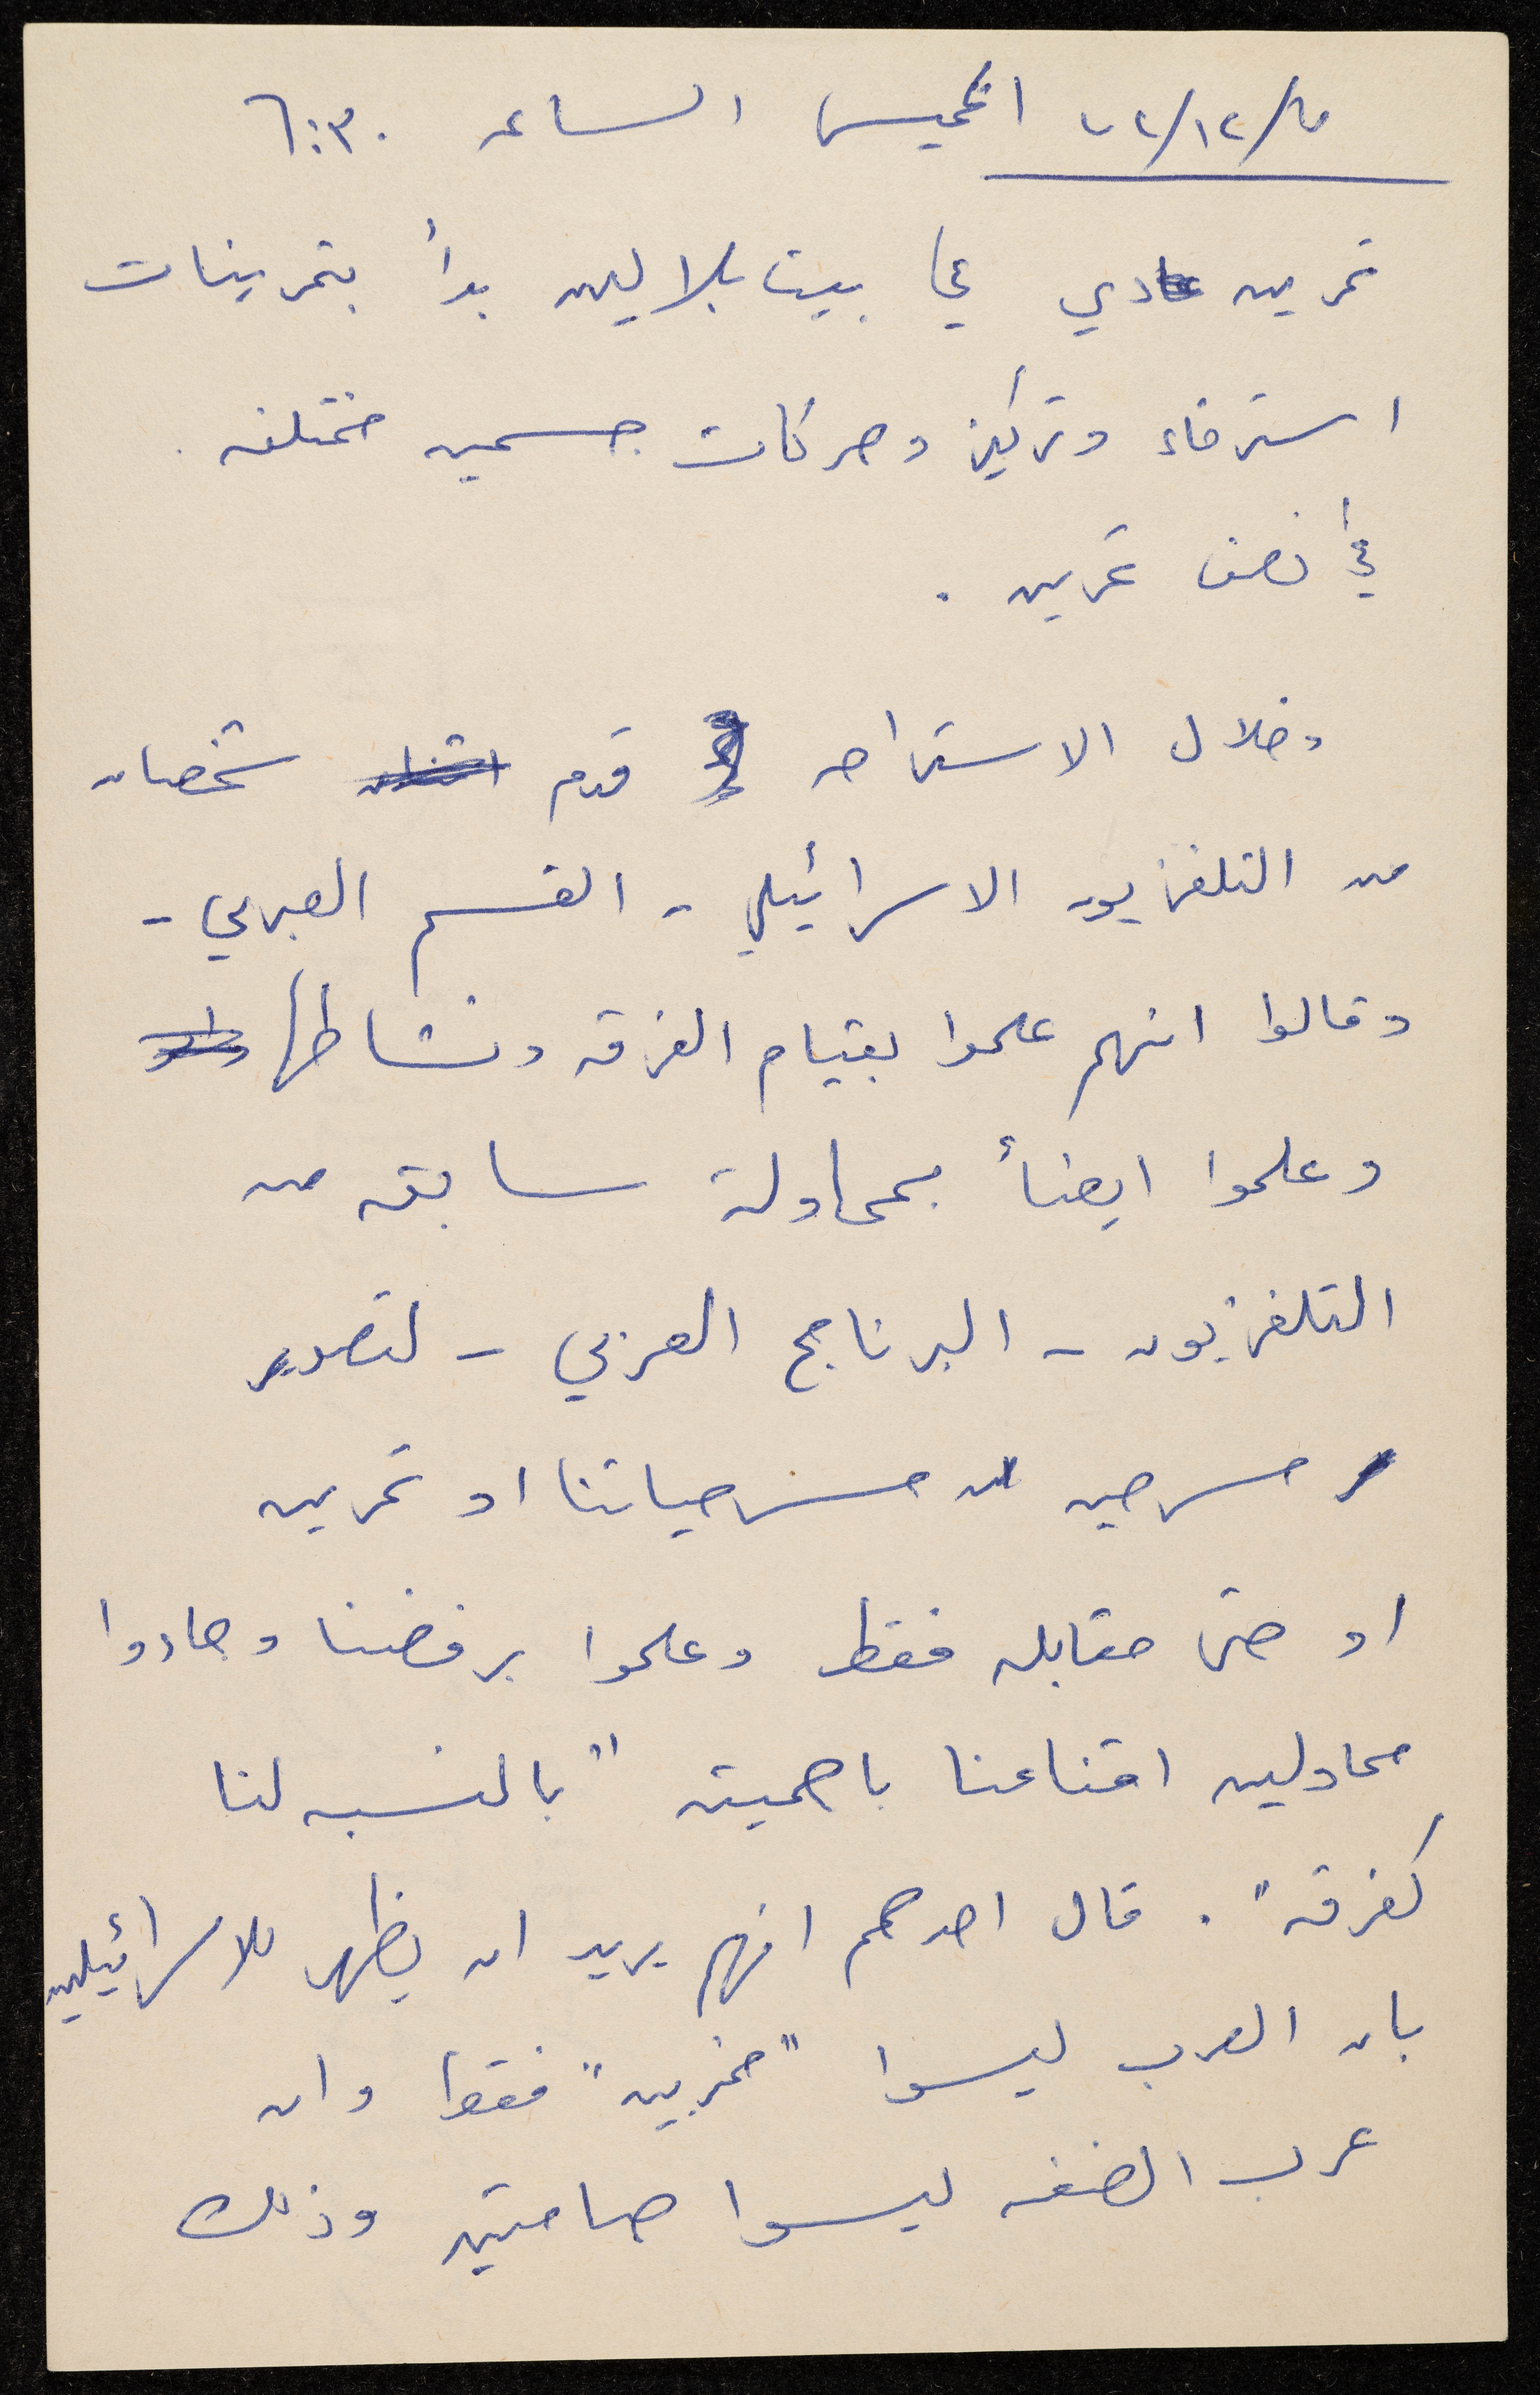 ٧٢/١٢/ الخميس الساعه ٦:٣٠
تمرين عادي في بيت بلالين بدأ بتمرينات
استرخاء وتركيز وحركات جسميه مختلفه .
في نصف تمرين .
وخلال الاستراحه قدم اثنان شخصان
من التلفزيون الاسرائيلي - القسم العبري -
وقالوا انهم علموا بقيام الفرقه ونشاطها
وعلموا ايضأ بمحاولة سابقه من
التلفزيون - البرنامج العربي - لتصوير
مسرحيه من مسرحياتنا او تمرين
او حتى مقابله فقط وعلموا برفضنا وجاءوا
محاولين اقناعنا باهميته "بالنسبه لنا
كفرقه" . قال احدهم انهم يريد ان يظهر للاسرائيلين
بان العرب ليسوا "مخربين" فقط وان
عرب الضفه ليسوا صامتين وذلك